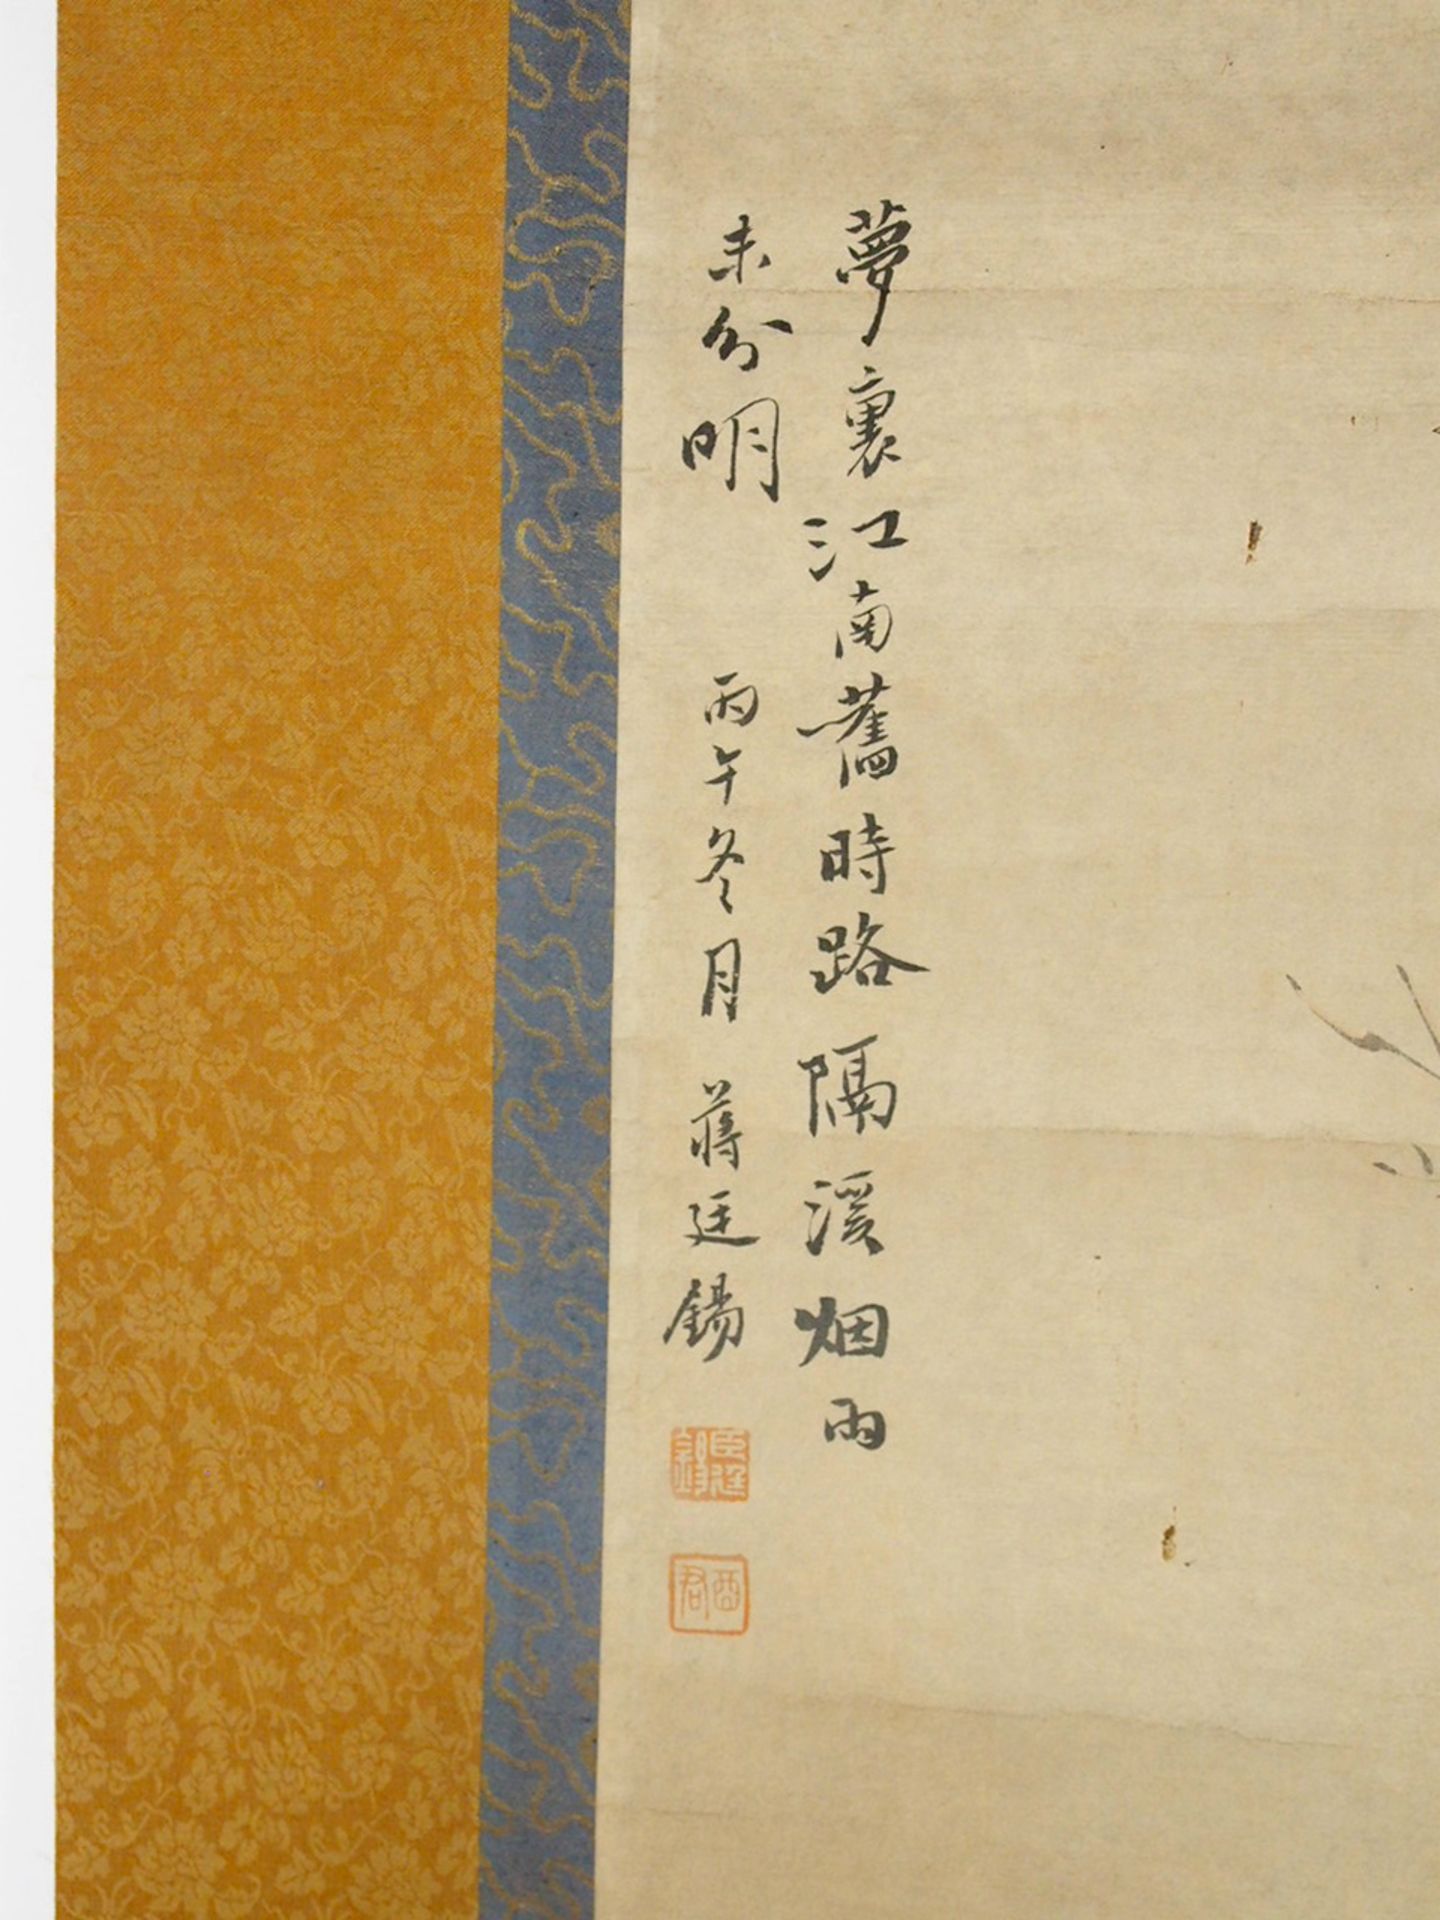 夢裏江南舊時路隔溪烟雨
未分明
丙午冬月 蔣廷錫
臣廷錫
酉君